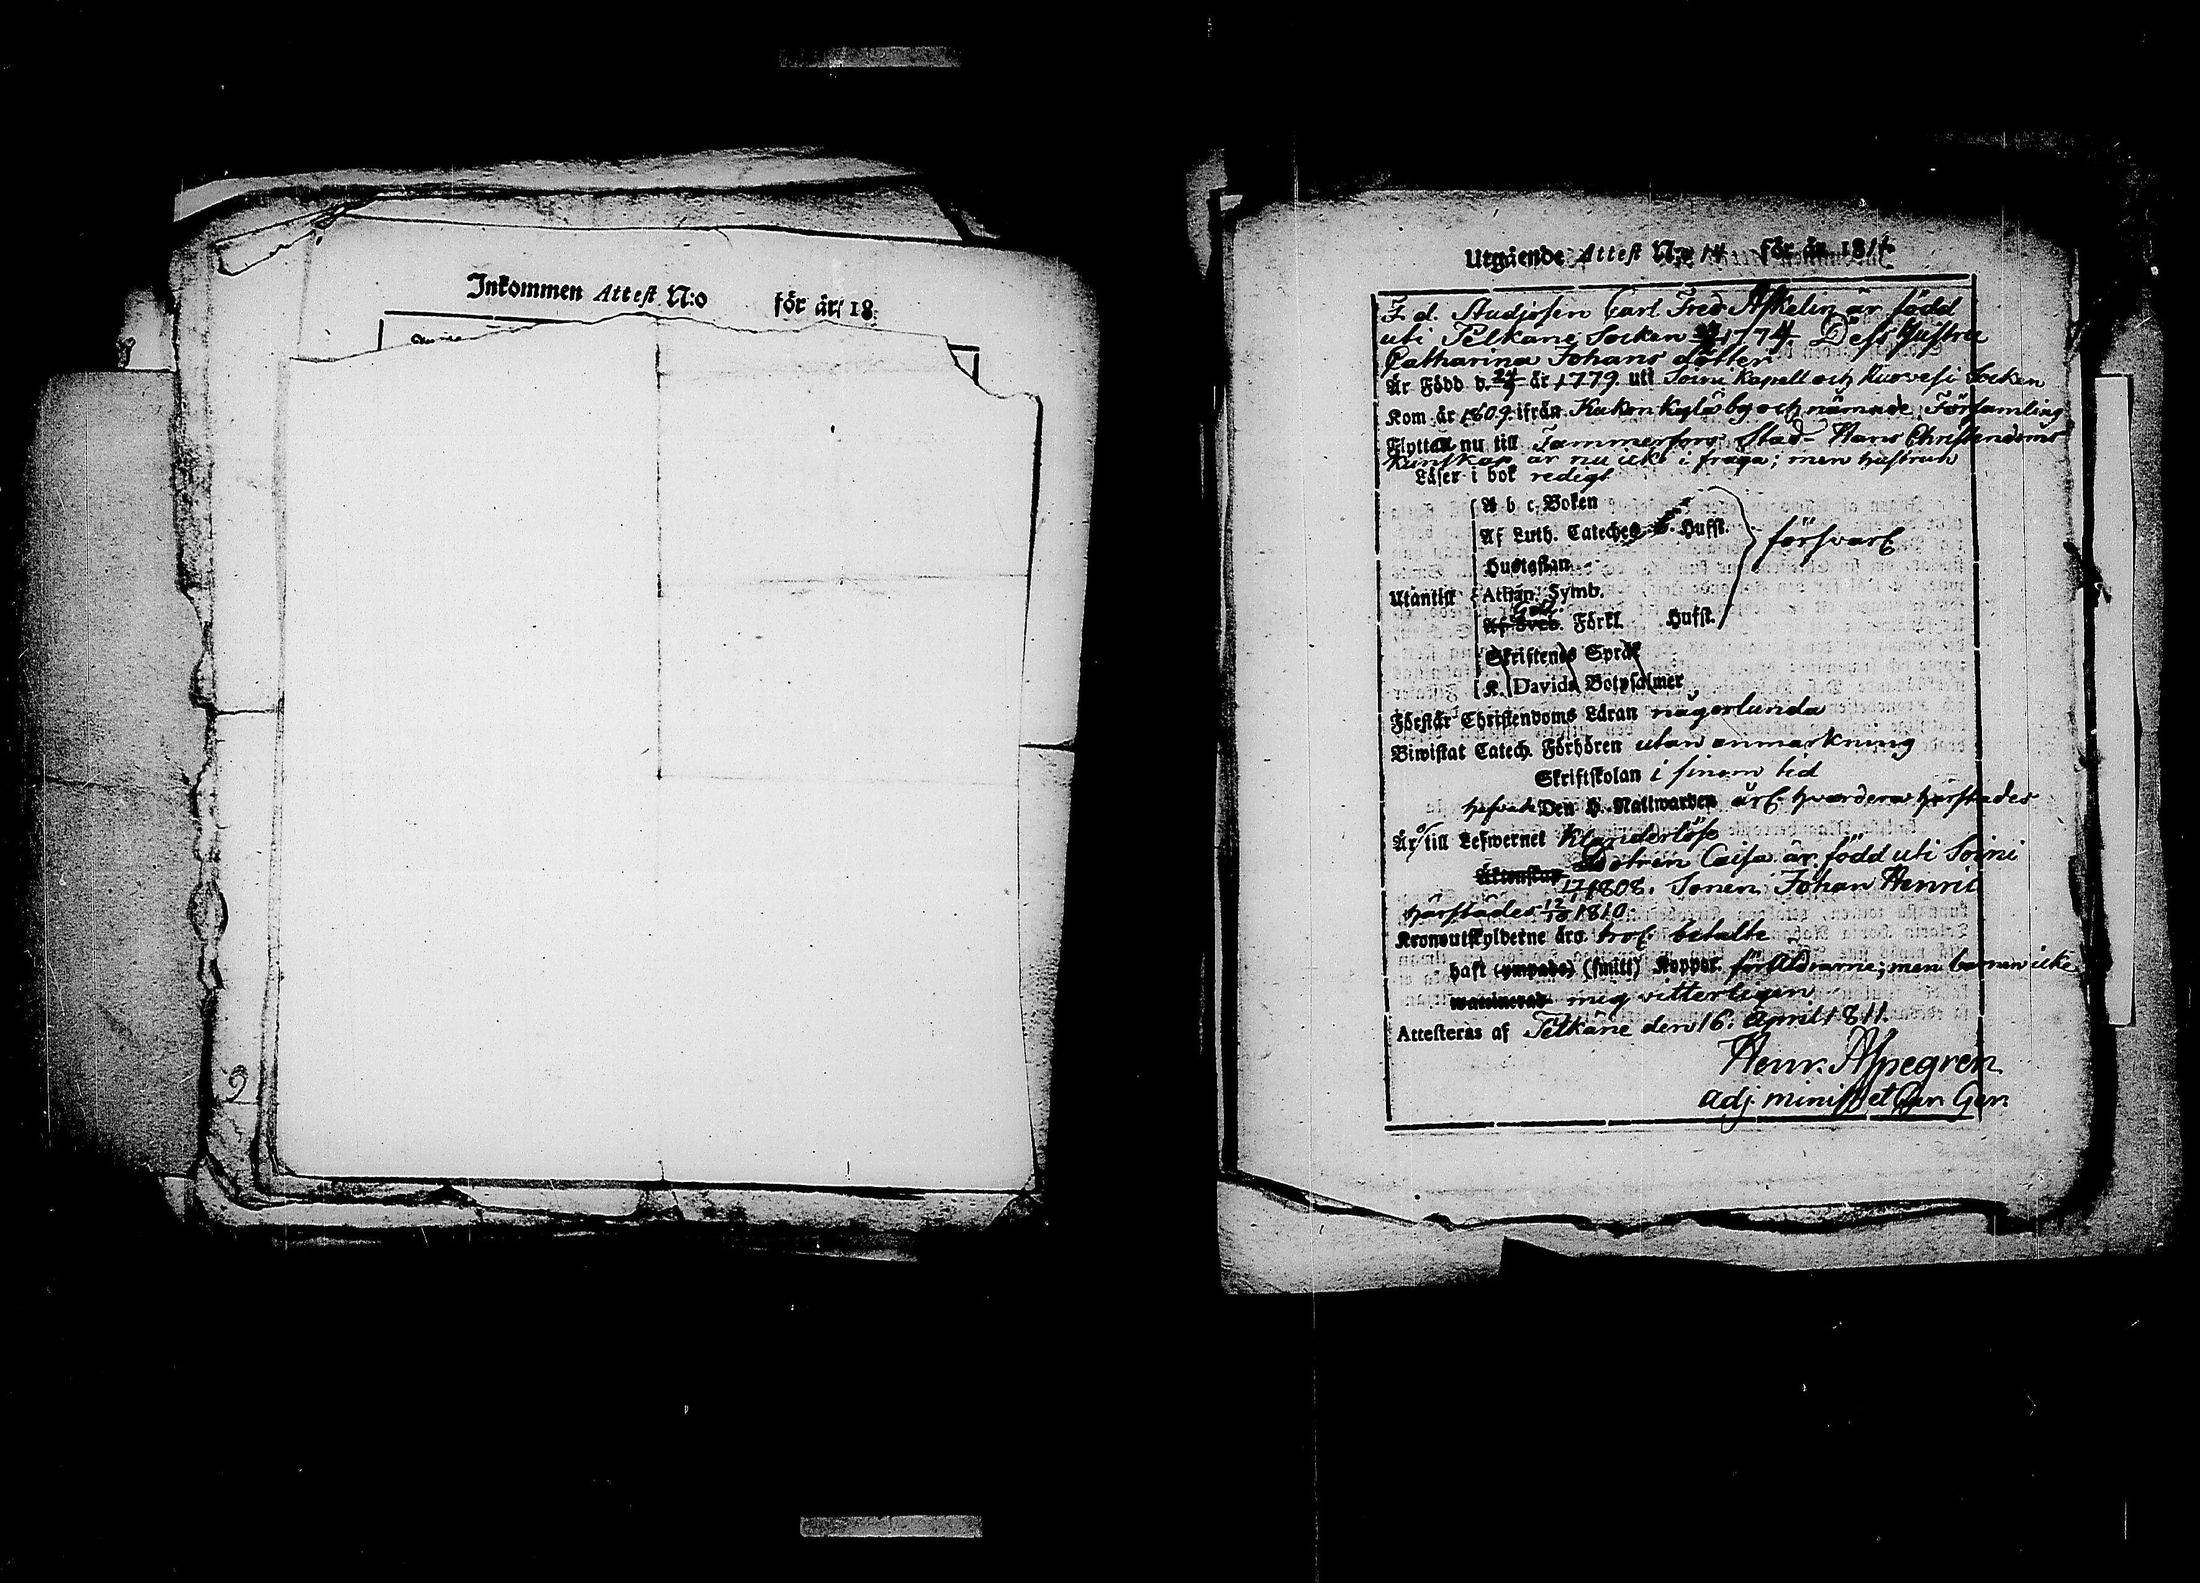 Inkommen Attest N:o för år 18
9
Utgående Attest N:o 14 för år 1811
F. d. Studiosen Carl Fred Aſkelin är född
uti Pelkäne Socken 1774. Deſs Huſtru
Catharina Johans dotter
Är Född d. 24/7 år 1779. uti Soini Kapell och Kuoveſi Socken
Kom år 1809 ifrån by och nämnde Församling
Flyttar nu till Tammerfors Stad. Hans Chriſtendoms
kunſkap är nu icke i fråga; men huſtrun
Läser i bok redigt
A b c Boken
Af Luth. Cateches Hufſt.
Huſtaflan
Utantill Athan. Symb. förſvarl.
Af Sveb. Förkl. Hufſt.
Skriftenes Språk
K. Davids Botpſalmer
Förſtår Chriſtendoms Läran någorlunda
Biwiſtat Catech. Förhören utan anmärkning
Skriftſkolan i ſinom tid
Den H. Nattwarden årl. hvardera härſtädes
Är till Lefwernet Klanderlöſe
Äktenſkap Dottren Caiſa är född uti Soini
1808. Sonen Johan Henric
härſtädes 12/10 1810
Kronoutſkylderne äro betalte
haft (ympade) (ſmitt) Koppor. föräldrarne; men barnen icke
mig vitterligen
Atteſteras af Pelkäne den 16. April 1811.
Henr. Aſpegren
adj. miniſt.